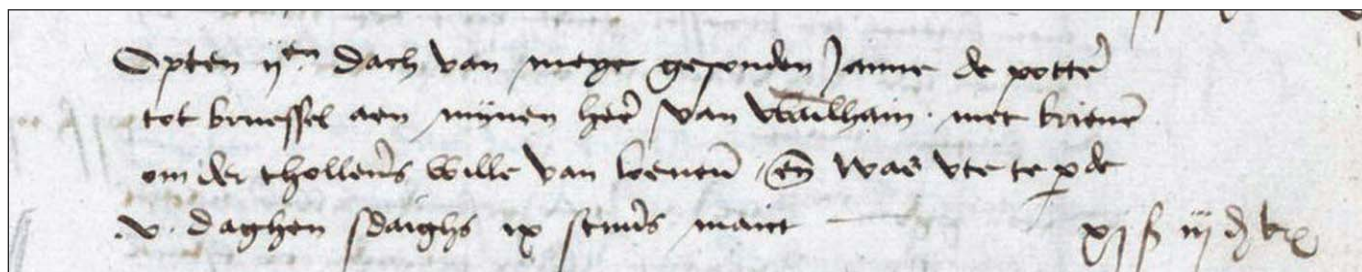 Opten ijen dach van meye gesonden Janne de potter
tot bruessel aen mijnen her van walhain met brieue
om der thollers wille van loeuen en was vte te perde
v daghen sdaighs ix stuuers maict xj s iij d br